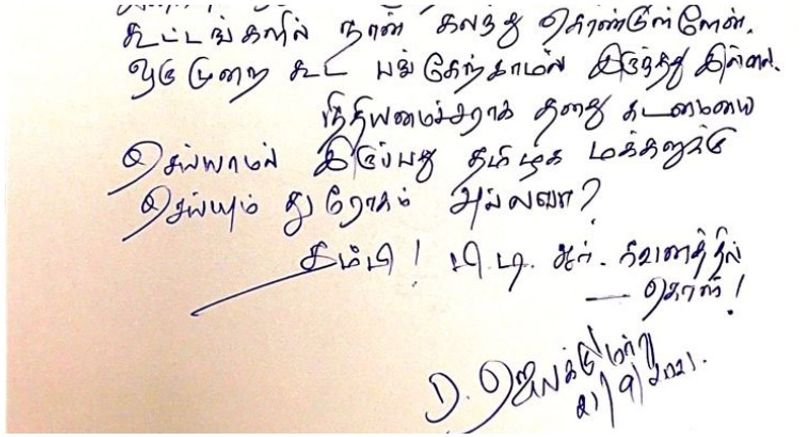 கூட்டங்களில் நான் கலந்து கொண்டுள்ளேன்.
ஒருமுறை கூட பங்கேற்காமல் இருந்தது இல்லை.
நிதியமைச்சராக தனது கடமையை
செய்யாமல் இருப்பது தமிழக மக்களுக்கு
செய்யும் துரோகம் அல்லவா?
தம்பி! பி.டி. ஆர். கவனத்தில்
— கொள்!
D. ஜெயக்குமார்
21/9/2021.